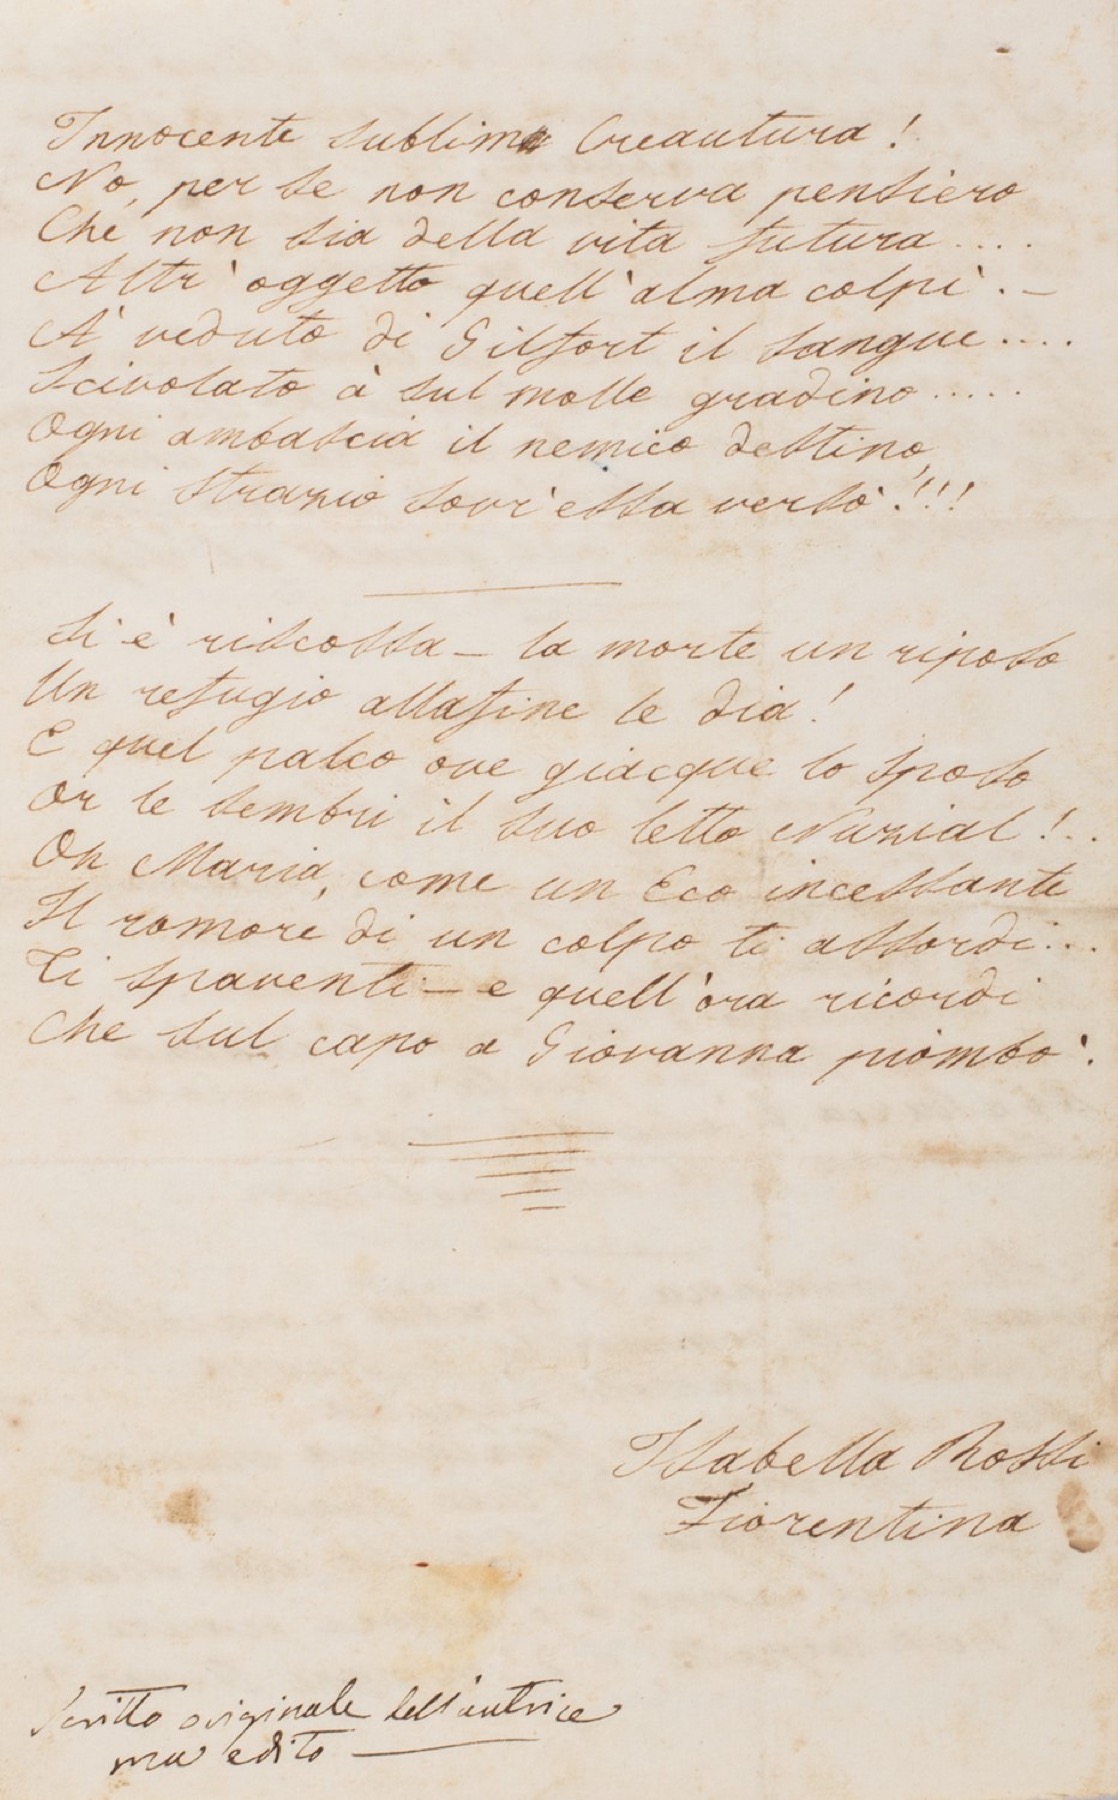 Innocente sublime Creautura!
No, per se non conserva pensiero
Che non sia della vita futura....
Altr' oggetto quell' alma colpì. –
À veduto di Gilfort il sangue....
Scivolato à sul molle gradino.....
Ogni ambascia il nemico destino,
Ogni strazio sovr' essa versò!!!
Si è riscossa – la morte un riposo
Un refugio allafine le dia!
E quel palco ove giacque lo sposo
Or le sembri il suo letto Nuzial!..
Oh Maria, come un Eco incessante
Il romore di un colpo ti assordi...
Ti spaventi – e quell' ora ricordi
Che sul capo a Giovanna piombò.
Isabella Rossi
Fiorentina
Scritto originale dell'autrice
ma edito —